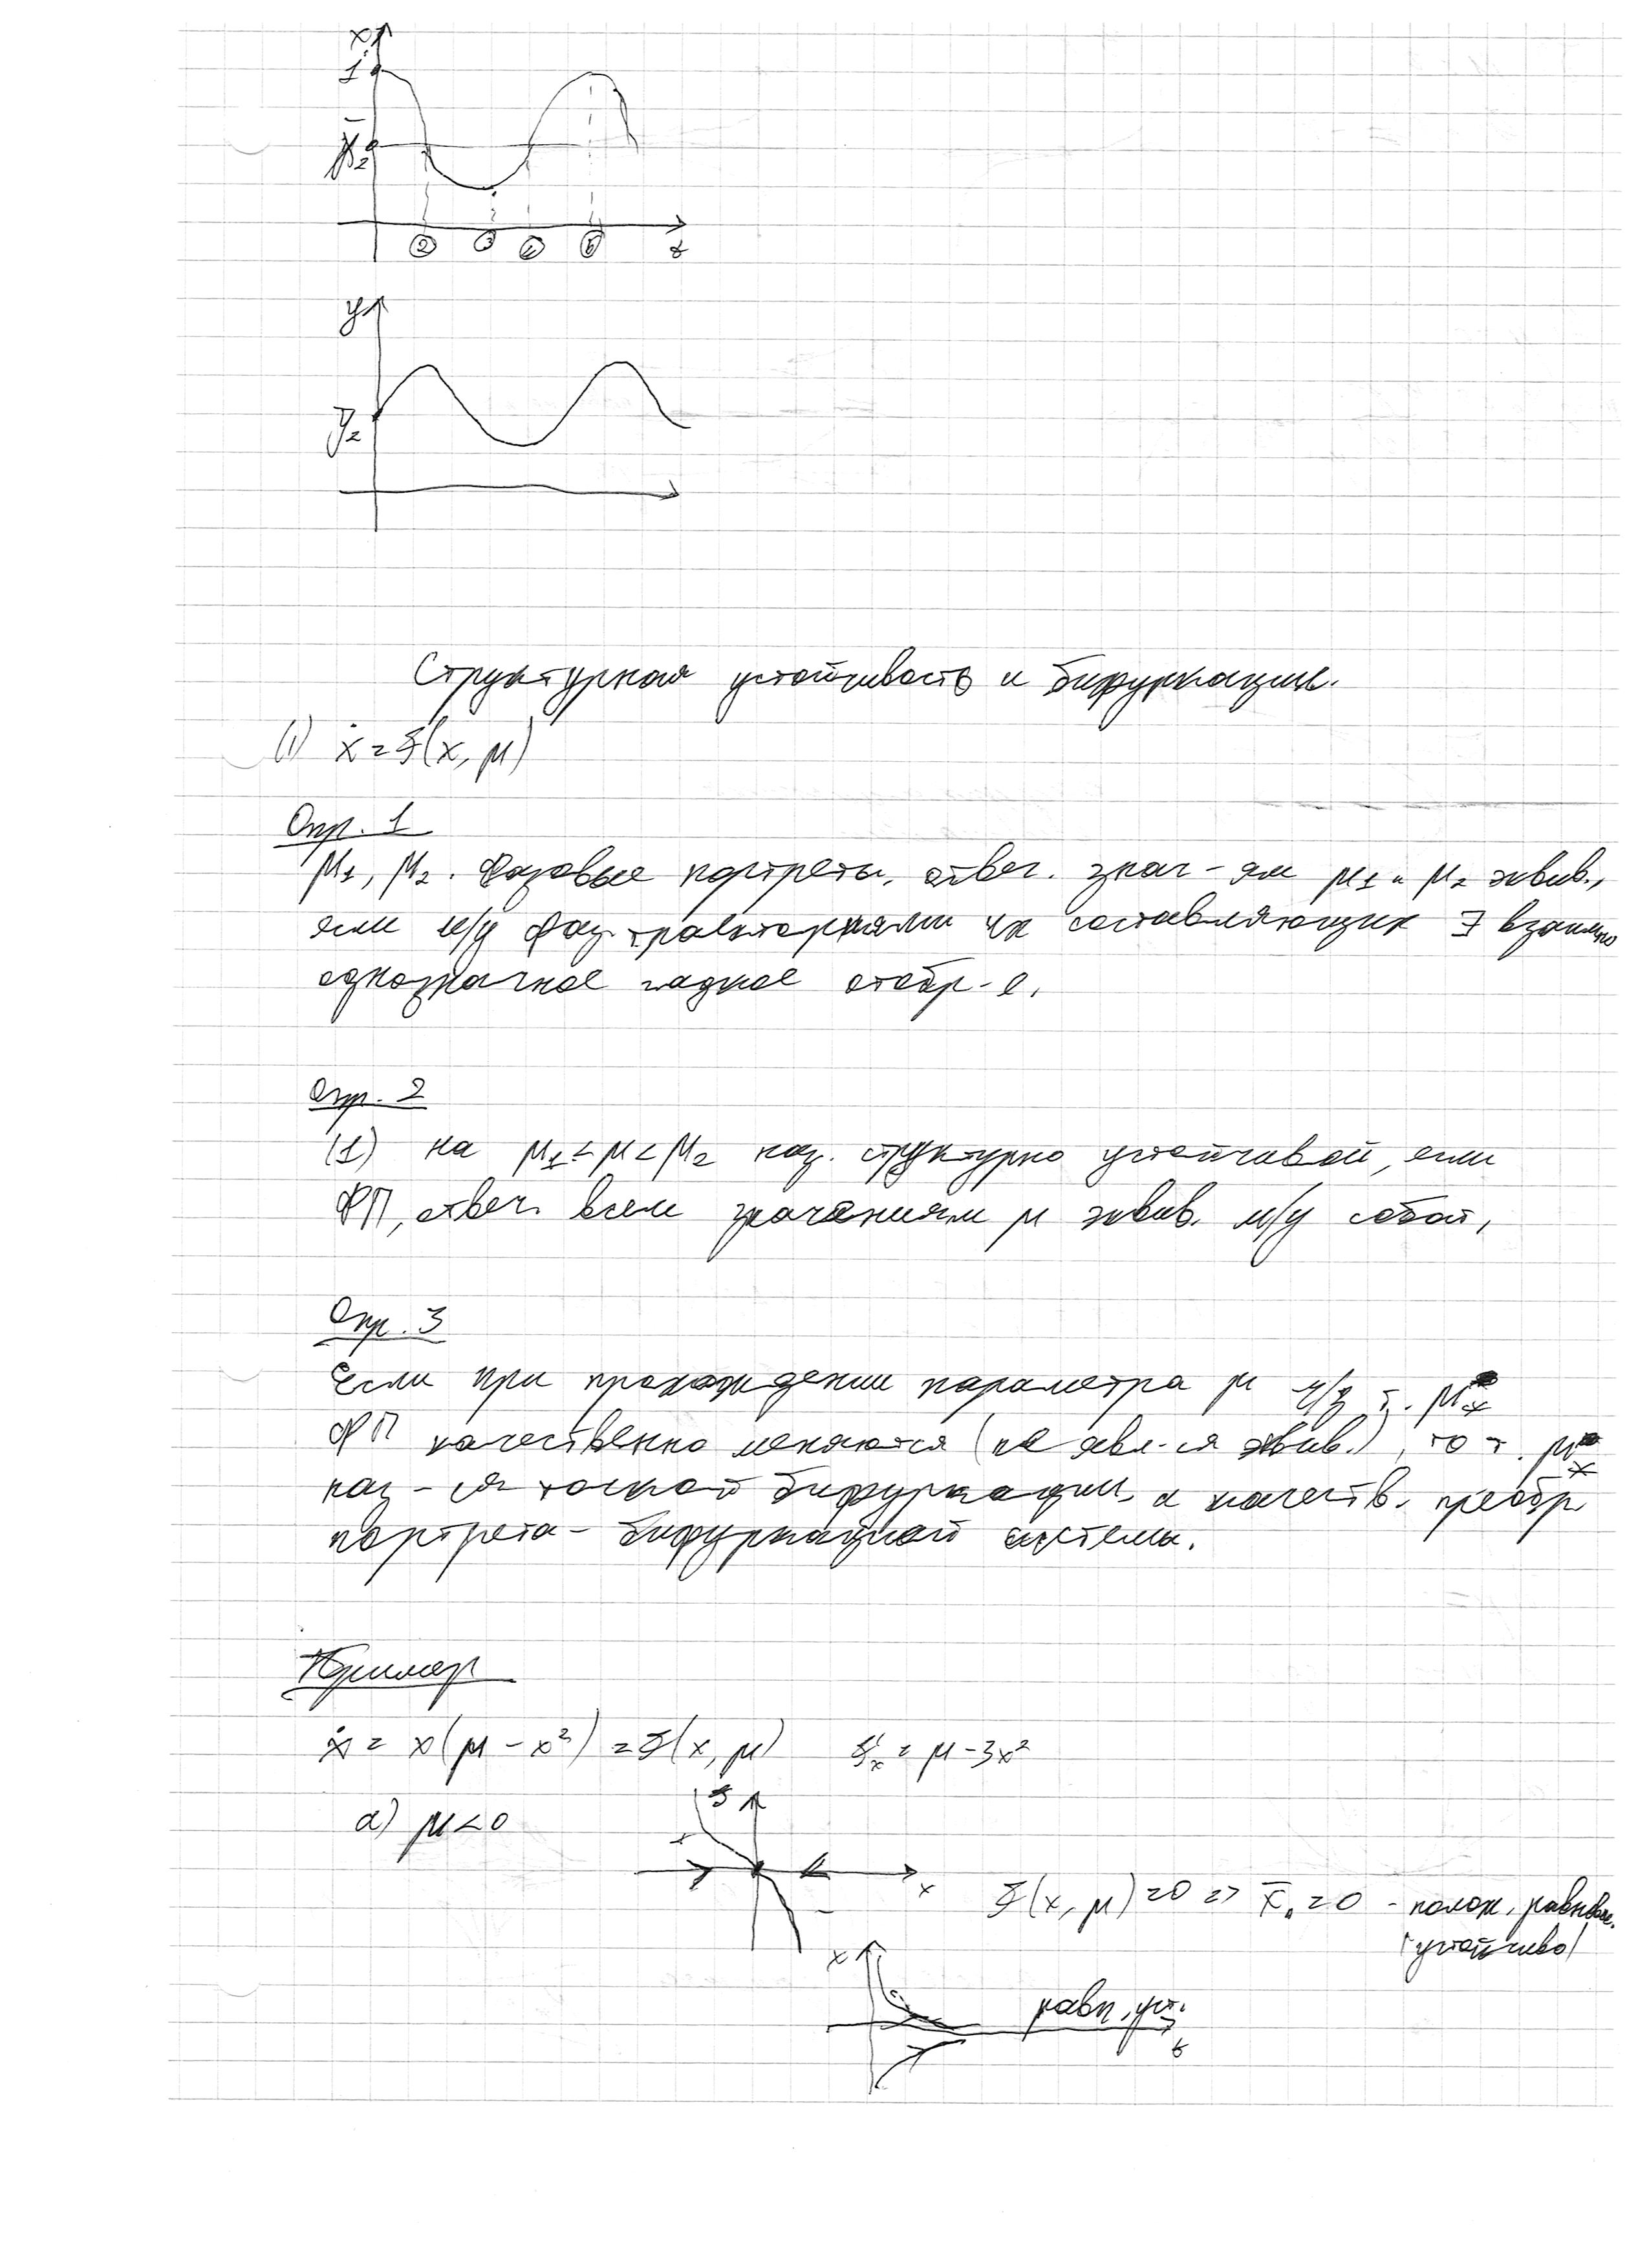 x
1
x̄₂
② ③ ④ ⑤ t
y
ȳ₂
Структурная устойчивость и бифуркации.
(1) ẋ = f(x, μ)
Опр. 1
μ₁, μ₂. Фазовые портреты, отвеч. знач-ям μ₁ и μ₂ эквив.,
если м/у фаз. траекториями их составляющих ∃ взаимно
однозначное гладкое отобр-е.
Опр. 2
(1) на μ₁ < μ < μ₂ наз. структурно устойчивой, если
ФП, отвеч. всем значениям μ эквив. м/у собой,
Опр. 3
Если при прохождении параметра μ ч/з т. μ*
ФП качественно меняются (не явл-ся эквив.), то т. μ*
наз-ся точкой бифуркации, а качеств. преобр
портрета - бифуркацией системы.
Пример
ẋ = x(μ - x²) = f(x, μ) f'ₓ = μ - 3x²
а) μ < 0
f
x
f(x, μ) = 0 => x̄₁ = 0 - полож. равнове.
(устойчиво)
x
равн. уст.
t